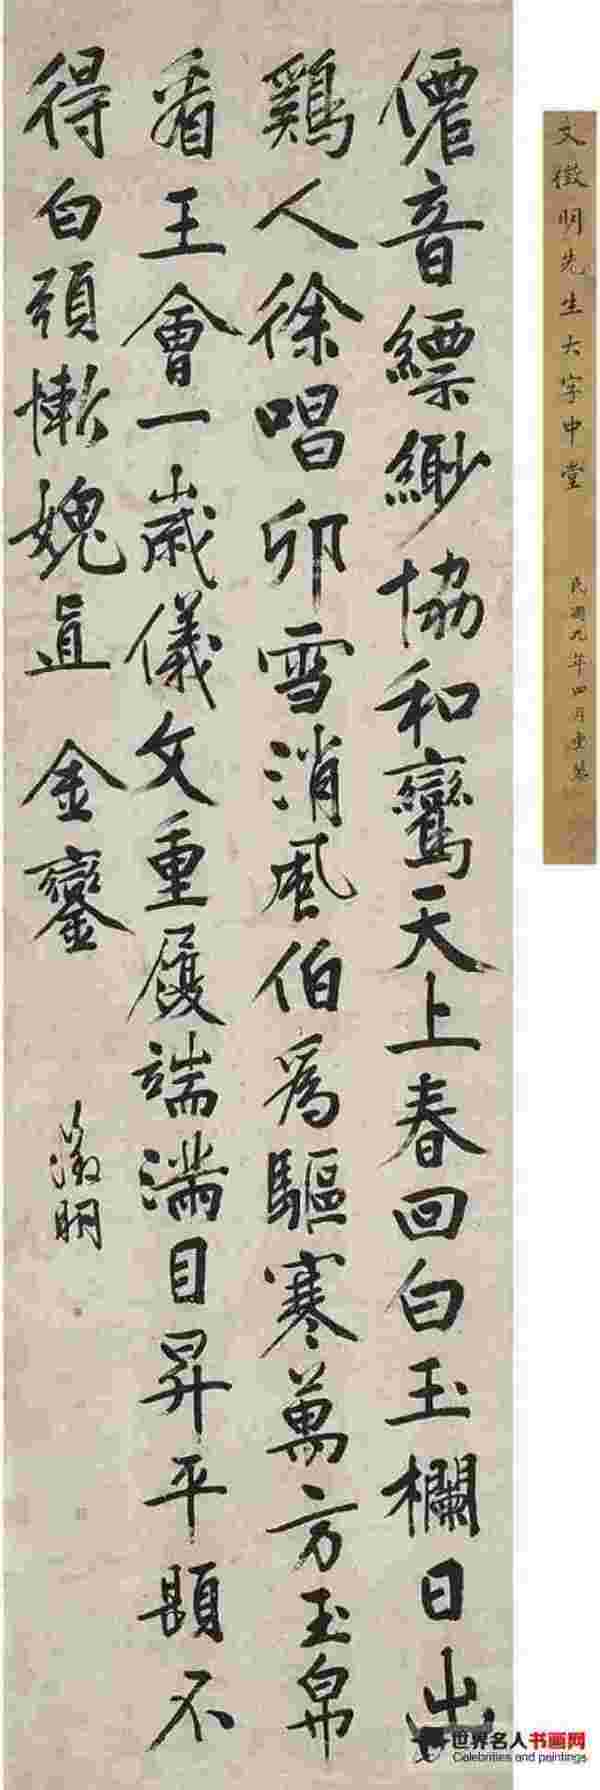 僊音縹緲協和鸞天上春回白玉欄日出
鷄人徐唱卯雪消風伯為驅寒萬方玉帛
看王會一歲儀文重履端滿目昇平題不
得白頭慚愧直金鑾
徵明
文徵明先生大字中堂
民國九年四月重裝
世界名人书画网
Celebrities and paintings